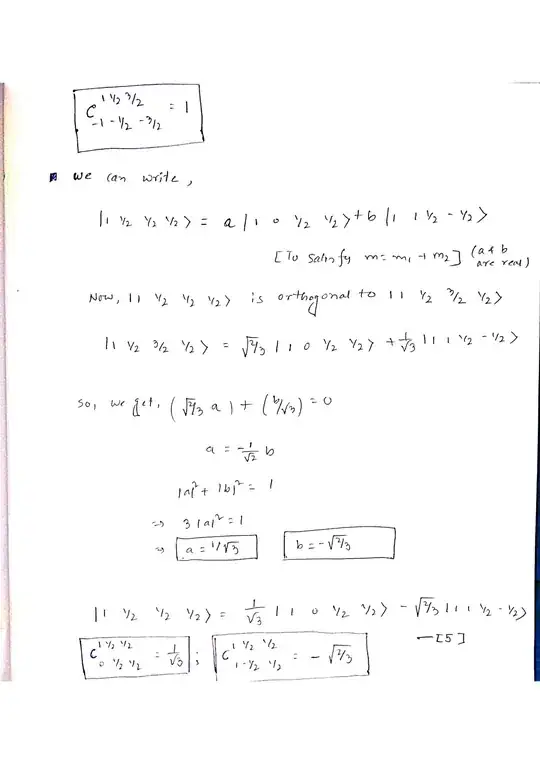 C^{1 ½ 3/2}_{-1 -½ -3/2} = 1
We can write,
|1 ½ ½ ½⟩ = a |1 0 ½ ½⟩ + b |1 1 ½ -½⟩
[To satisfy m = m₁ + m₂] (a & b are real)
Now, |1 ½ ½ ½⟩ is orthogonal to |1 ½ 3/2 ½⟩
|1 ½ 3/2 ½⟩ = √2/3 |1 0 ½ ½⟩ + 1/√3 |1 1 ½ -½⟩
So, we get, (√2/3 a) + (b/√3) = 0
a = -1/√2 b
|a|² + |b|² = 1
⇒ 3|a|² = 1
⇒ a = 1/√3 b = -√2/3
|1 ½ ½ ½⟩ = 1/√3 |1 0 ½ ½⟩ - √2/3 |1 1 ½ -½⟩
—[5]
C^{1 ½ ½}_{0 ½ ½} = 1/√3 ; C^{1 ½ ½}_{1 -½ ½} = -√2/3